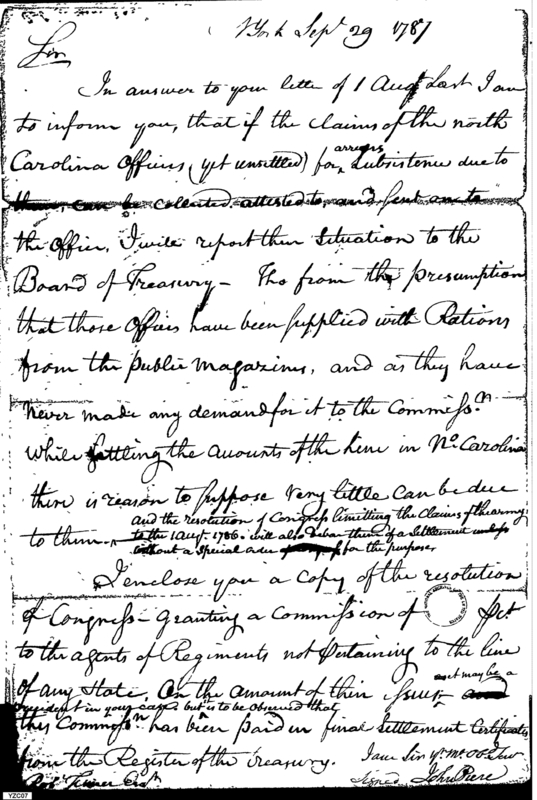 N York Sepr 29 1787
Sir
In answer to your letter of 1 Augt Last I am
to inform you, that if the claims of the north
Carolina Officers (yet unsettled) for arrears Subsistence due to
them, can be collected attested to, and sent on to
the Office, I will report their Situation to the
Board of Treasury - Tho from the presumption
that those Officers have been supplied with Rations
from the public magazines, and as they have
Never made any demand for it to the Commissn.
while settling the accounts of the line in No. Carolina
there is reason to suppose very little can be due
and the resolution of Congress limitting the Claims of the army
to them. to the 1 Augt. 1786. will also debar them of a Settlement unless
without a Special order for the purpose.
I enclose you a Copy of the resolution
of Congress - granting a Commission of pCt
to the agents of Regiments not pertaining to the line
of any State, On the amount of their issues as it may be a
president in your case but is to be observed that
this Commissn. has been paid in final Settlement Certificates
from the Register of the treasury. I am Sir Yr. Mo. Ob. Ser
Signed John Pierce
YZC07